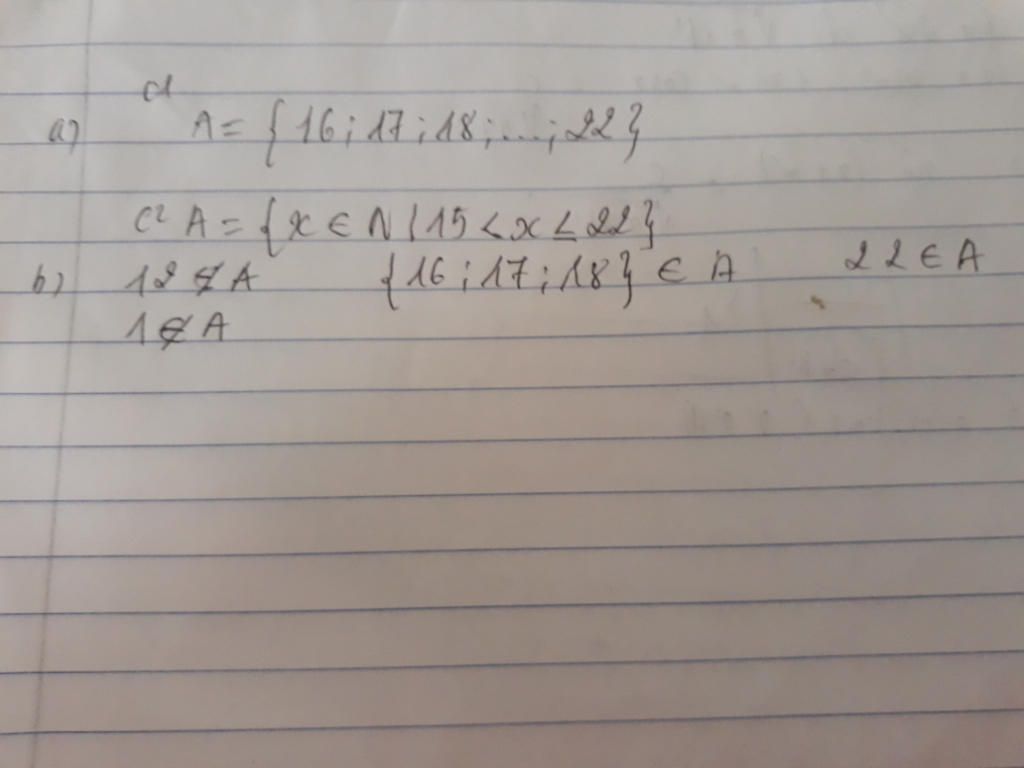 c1
a) A = { 16 ; 17 ; 18 ; ... ; 22 }
C2 A = { x ∈ N | 15 < x ≤ 22 }
b) 12 ∉ A { 16 ; 17 ; 18 } ∈ A 22 ∈ A
1 ∉ A